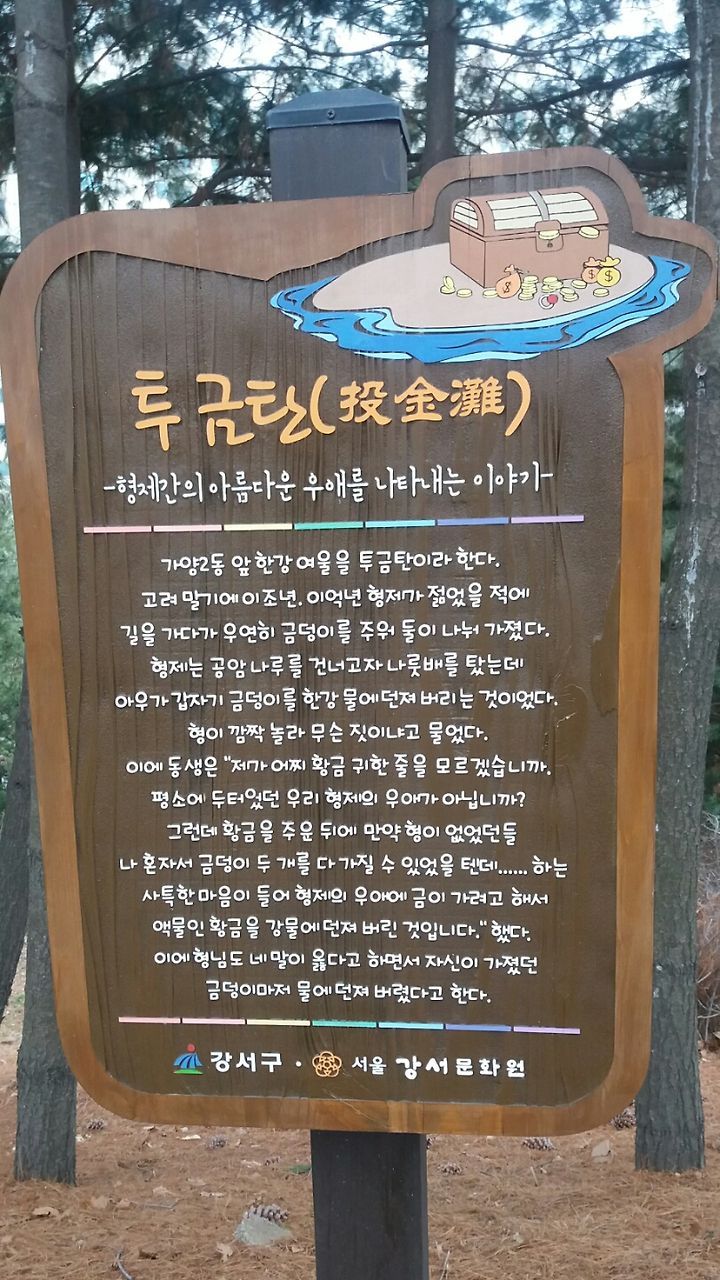 투금탄(投金灘)
-형제간의 아름다운 우애를 나타내는 이야기-
가양2동 앞 한강 여울을 투금탄이라 한다.
고려 말기에 이조년. 이억년 형제가 젊었을 적에
길을 가다가 우연히 금덩이를 주워 둘이 나눠 가졌다.
형제는 공암 나루를 건너고자 나룻배를 탔는데
아우가 갑자기 금덩이를 한강 물에 던져 버리는 것이었다.
형이 깜짝 놀라 무슨 짓이냐고 물었다.
이에 동생은 "저가 어찌 황금 귀한 줄을 모르겠습니까.
평소에 두터었던 우리 형제의 우애가 아닙니까?
그런데 황금을 주운 뒤에 만약 형이 없었던들
나 혼자서 금덩이 두 개를 다 가질 수 있었을 텐데...... 하는
사특한 마음이 들어 형제의 우애에 금이 가려고 해서
액물인 황금을 강물에 던져 버린 것입니다." 했다.
이에 형님도 네 말이 옳다고 하면서 자신이 가졌던
금덩이마저 물에 던져 버렸다고 한다.
강서구 · 서울 강서문화원